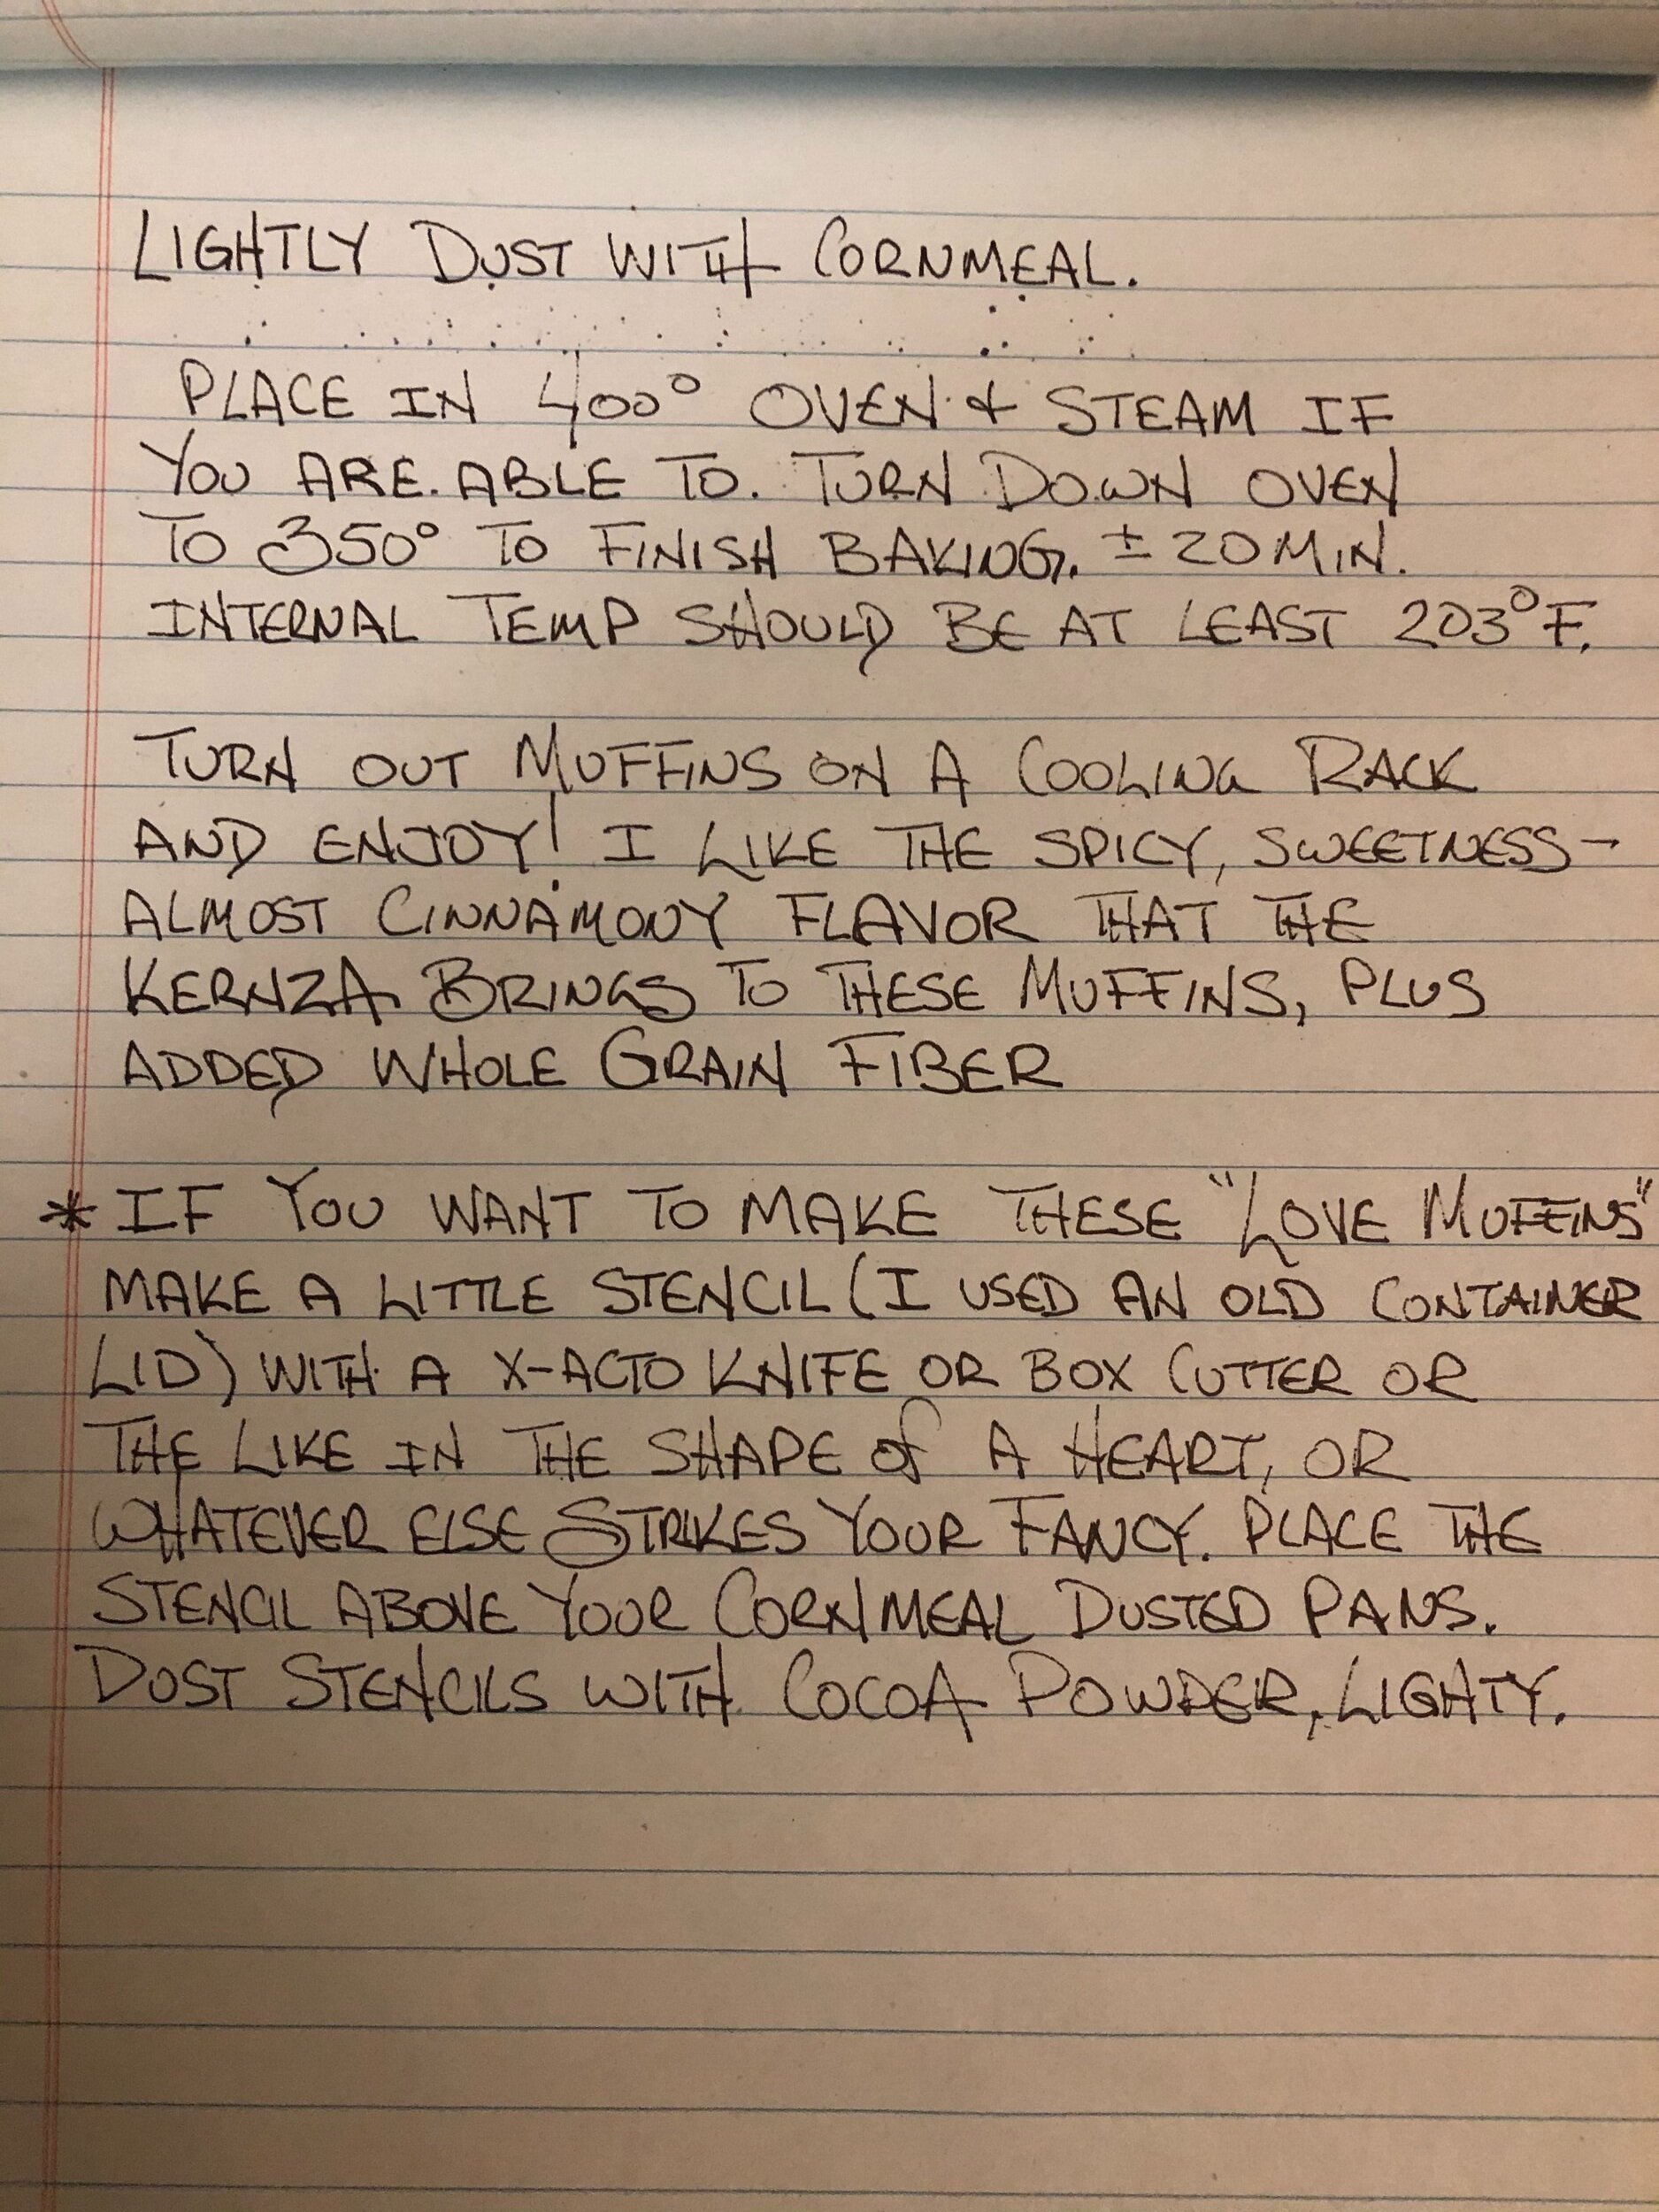 LIGHTLY DUST WITH CORNMEAL.
PLACE IN 400° OVEN & STEAM IF
YOU ARE ABLE TO. TURN DOWN OVEN
TO 350° TO FINISH BAKING. ± 20 MIN.
INTERNAL TEMP SHOULD BE AT LEAST 203°F.
TURN OUT MUFFINS ON A COOLING RACK
AND ENJOY! I LIKE THE SPICY, SWEETNESS-
ALMOST CINNAMONY FLAVOR THAT THE
KERNZA BRINGS TO THESE MUFFINS, PLUS
ADDED WHOLE GRAIN FIBER
* IF YOU WANT TO MAKE THESE "LOVE MUFFINS"
MAKE A LITTLE STENCIL (I USED AN OLD CONTAINER
LID) WITH A X-ACTO KNIFE OR BOX CUTTER OR
THE LIKE IN THE SHAPE of A HEART, OR
WHATEVER ELSE STRIKES YOUR FANCY. PLACE THE
STENCIL ABOVE YOUR CORNMEAL DUSTED PANS.
DUST STENCILS WITH COCOA POWDER, LIGHTY.